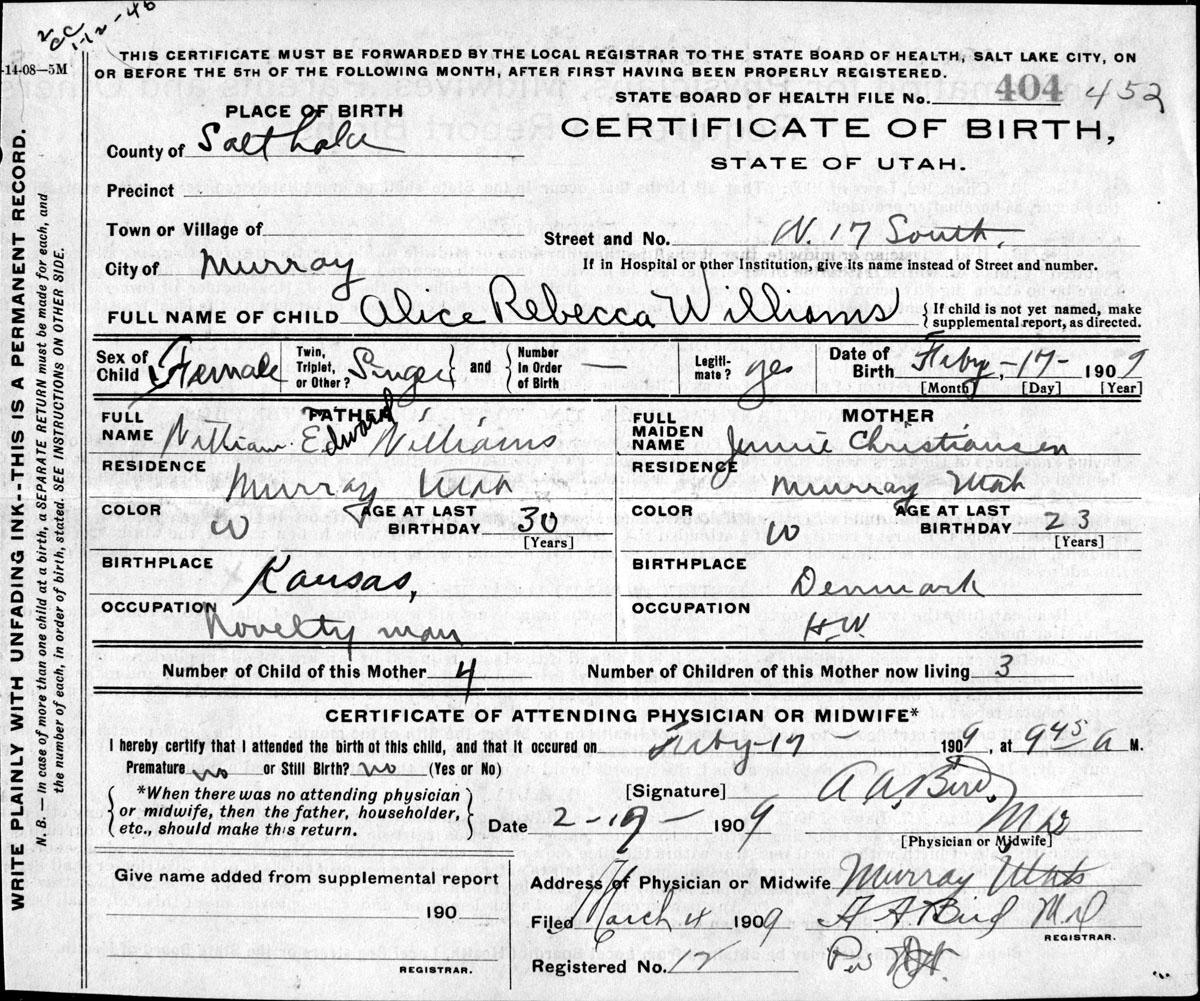 2 CC 1-12-46
-14-08—5M
THIS CERTIFICATE MUST BE FORWARDED BY THE LOCAL REGISTRAR TO THE STATE BOARD OF HEALTH, SALT LAKE CITY, ON
OR BEFORE THE 5TH OF THE FOLLOWING MONTH, AFTER FIRST HAVING BEEN PROPERLY REGISTERED.
STATE BOARD OF HEALTH FILE No. 404 452
PLACE OF BIRTH
CERTIFICATE OF BIRTH,
STATE OF UTAH.
County of Salt Lake
Precinct
Town or Village of
Street and No. N. 17 South,
City of Murray
If in Hospital or other Institution, give its name instead of Street and number.
FULL NAME OF CHILD Alice Rebecca Williams { If child is not yet named, make supplemental report, as directed.
Sex of Child Female Twin, Triplet, or Other? Singel } and { Number in Order of Birth — Legiti-mate? yes Date of Birth Feby - 17 - 1909
[Month] [Day] [Year]
FATHER
FULL NAME William Edward Williams
RESIDENCE Murray Utah
COLOR W AGE AT LAST BIRTHDAY 30 [Years]
BIRTHPLACE Kansas,
OCCUPATION Novelty man
MOTHER
FULL MAIDEN NAME Jennie Christiansen
RESIDENCE Murray Utah
COLOR W AGE AT LAST BIRTHDAY 23 [Years]
BIRTHPLACE Denmark
OCCUPATION H.W.
Number of Child of this Mother 4 Number of Children of this Mother now living 3
CERTIFICATE OF ATTENDING PHYSICIAN OR MIDWIFE*
I hereby certify that I attended the birth of this child, and that it occured on Feby-17 1909, at 9 45 a M.
Premature no or Still Birth? no (Yes or No)
{ *When there was no attending physician or midwife, then the father, householder, etc., should make this return. }
[Signature] A A. Bird,
M D
[Physician or Midwife]
Date 2-19- 1909
Give name added from supplemental report
190
REGISTRAR.
Address of Physician or Midwife Murray Utah
Filed March 4 1909 A A Bird M.D
REGISTRAR.
Registered No.
Per
WRITE PLAINLY WITH UNFADING INK--THIS IS A PERMANENT RECORD.
N.B.— In case of more than one child at a birth, a SEPARATE RETURN must be made for each, and
the number of each, in order of birth, stated. SEE INSTRUCTIONS ON OTHER SIDE.